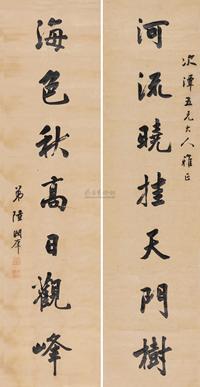 次潭五兄大人雅正
河流曉挂天門樹
海色秋高日觀峰
弟陸潤庠